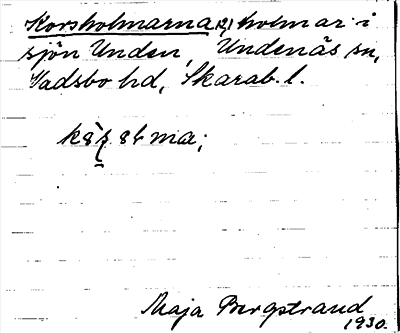 Korsholmarna (2) holmar i
sjön Unden, Undenäs sn,
Vadsbo hd, Skarab. l.
Maja Bergstrand
1930.